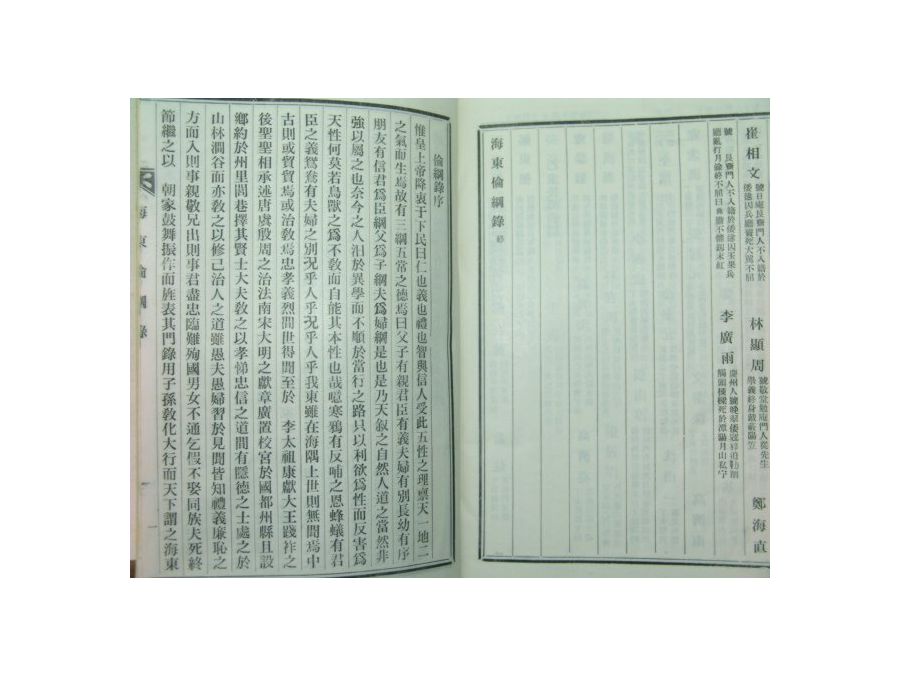 崔相文
林顯周
鄭海直
李廣雨
海東倫綱錄 終
倫綱錄序
惟皇上帝降衷于下民曰仁也義也禮也智與信人受此五性之理禀天一地二
之氣而生焉故有三綱五常之德焉曰父子有親君臣有義夫婦有別長幼有序
朋友有信君爲臣綱父爲子綱夫爲婦綱是也是乃天叙之自然人道之當然非
強以屬之也奈今之人汩於異學而不順於當行之路只以利欲爲性而反害爲
天性何莫若鳥獸之爲不敎而自能其本性也哉噫寒鴉有反哺之恩蜂蟻有君
臣之義鴛鴦有夫婦之別况乎人乎况乎人乎我東雖在海隅上世則無間焉中
古則或貿貿焉或治敎焉忠孝義烈間世得聞至於 李太祖康獻大王踐祚之
後聖聖相承述唐虞殷周之治法南宋大明之獻章廣置校宮於國都州縣且設
鄕約於州里閭巷擇其賢士大夫敎之以孝悌忠信之道間有隱德之士處之於
山林澗谷而亦敎之以修己治人之道雖愚夫愚婦習於見聞皆知禮義廉恥之
方而入則事親敬兄出則事君盡忠臨難殉國男女不通乞假不娶同族夫死終
節繼之以 朝家鼓舞振作而旌表其門錄用子孫敎化大行而天下謂之海東
海東倫綱錄
一